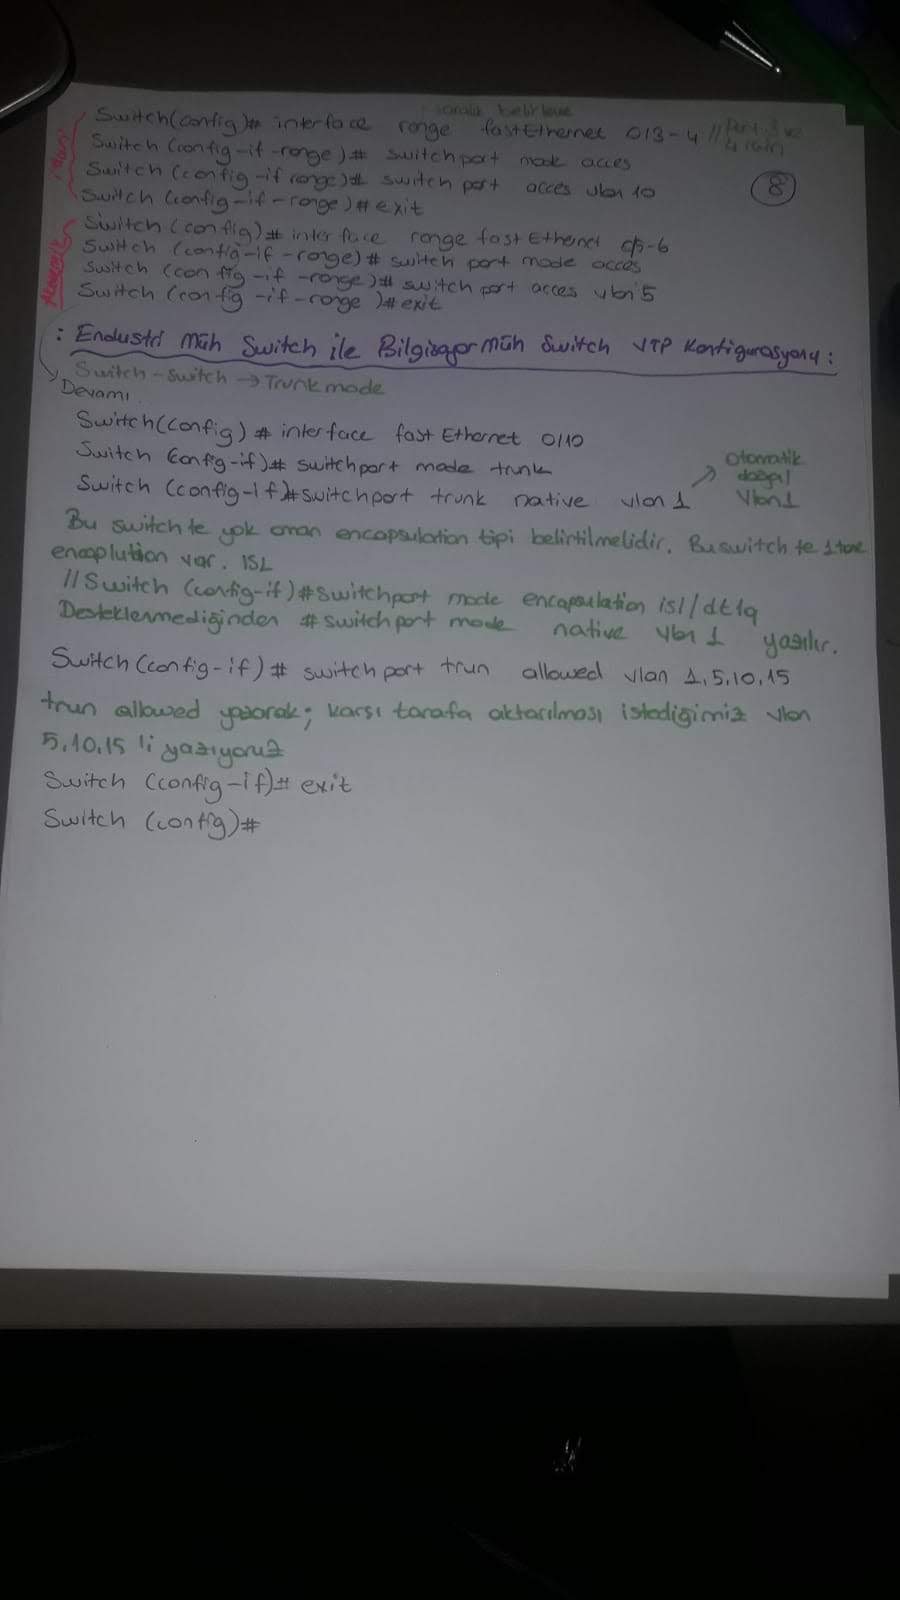 aralık belirleme
Switch(config)# interface range fastEthernet 0/3-4 // port 3 ve
4 için
Switch (config-if-range)# switchport mode acces
Switch (config-if range)# switch port acces vlan 10
Switch (config-if-range)# exit
8
Switch (config)# interface range fast Ethernet 0/5-6
Switch (config-if-range)# switch port mode acces
Switch (config-if-range)# switch port acces vlan 5
Switch (config-if-range)# exit
: Endustri Müh Switch ile Bilgisayar Müh Switch VTP Konfigurasyonu :
Switch-Switch → Trunk mode
Devamı
Switch(config) # interface fast Ethernet 0/10
Switch config-if)# switchport mode trunk
Switch (config-if)# switchport trunk native vlan 1
Otomatik
değil
Vlan 1
Bu switch te yok aman encapsulation tipi belirtilmelidir. Bu switch te 1 tane
encaplution var. ISL
// Switch (config-if)# Switchport mode encapsulation isl/dt1q
Desteklenmediğinden # switchport mode native vlan 1 yazılır.
Switch(config-if)# switchport trun allowed vlan 1,5,10,15
trun allowed yazarak; karşı tarafa aktarılması istediğimiz vlan
5,10,15 'i yazıyoruz
Switch (config-if)# exit
Switch (config)#